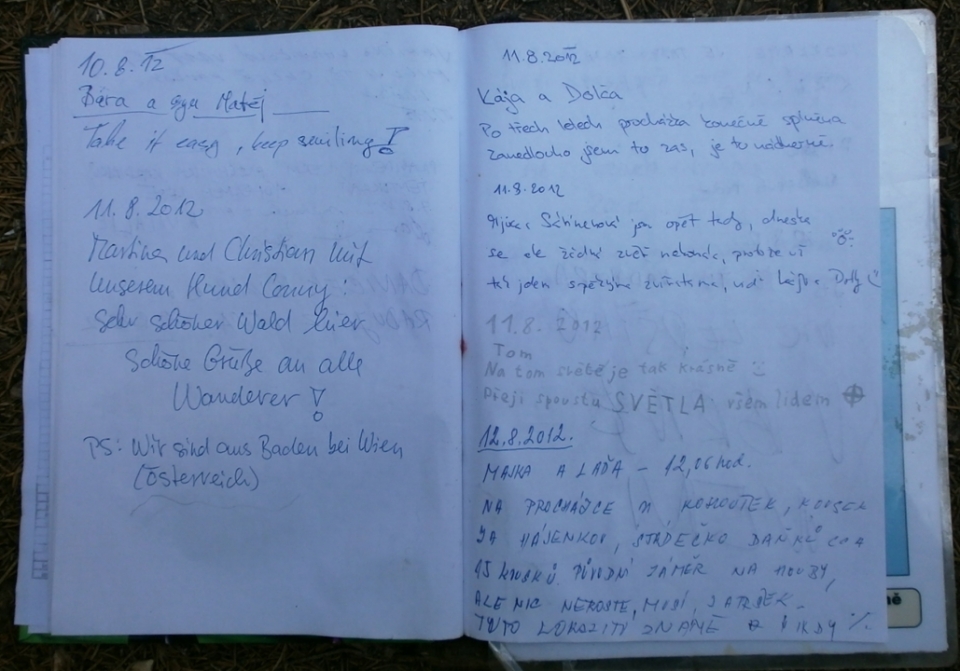 10.8.12
Bára a syn Matěj
Take it easy, keep smiling!
11.8.2012
Martina und Christian mit
unserem Hund Conny:
Sehr schöner Wald hier
Schöne Grüße an alle
Wanderer!
PS: Wir sind aus Baden bei Wien
(Österreich)
11.8.2012
Kája a Dolča
Po třech letech procházka konečně splněna
zanedlouho jsem tu zas, je tu nádherně.
11.8.2012
opět tady, dneska
se ale žádná zvěř nekoná, protože
tu jdem
11.8. 2012
Tom
Na tom světě je tak krásně
Přeji spoustu SVĚTLA všem lidem
12.8.2012.
MAJKA A LAĎA - 12,06 hod.
NA PROCHÁZCE KOHOUTEK, KOUSEK
ZA HÁJENKOU, STÁDEČKO DAŇKŮ CCA
15 KOUSKŮ. PŮVODNÍ ZÁMĚR NA HOUBY,
ALE NIC NEROSTE,
TUTO LOKALITU ZNÁME